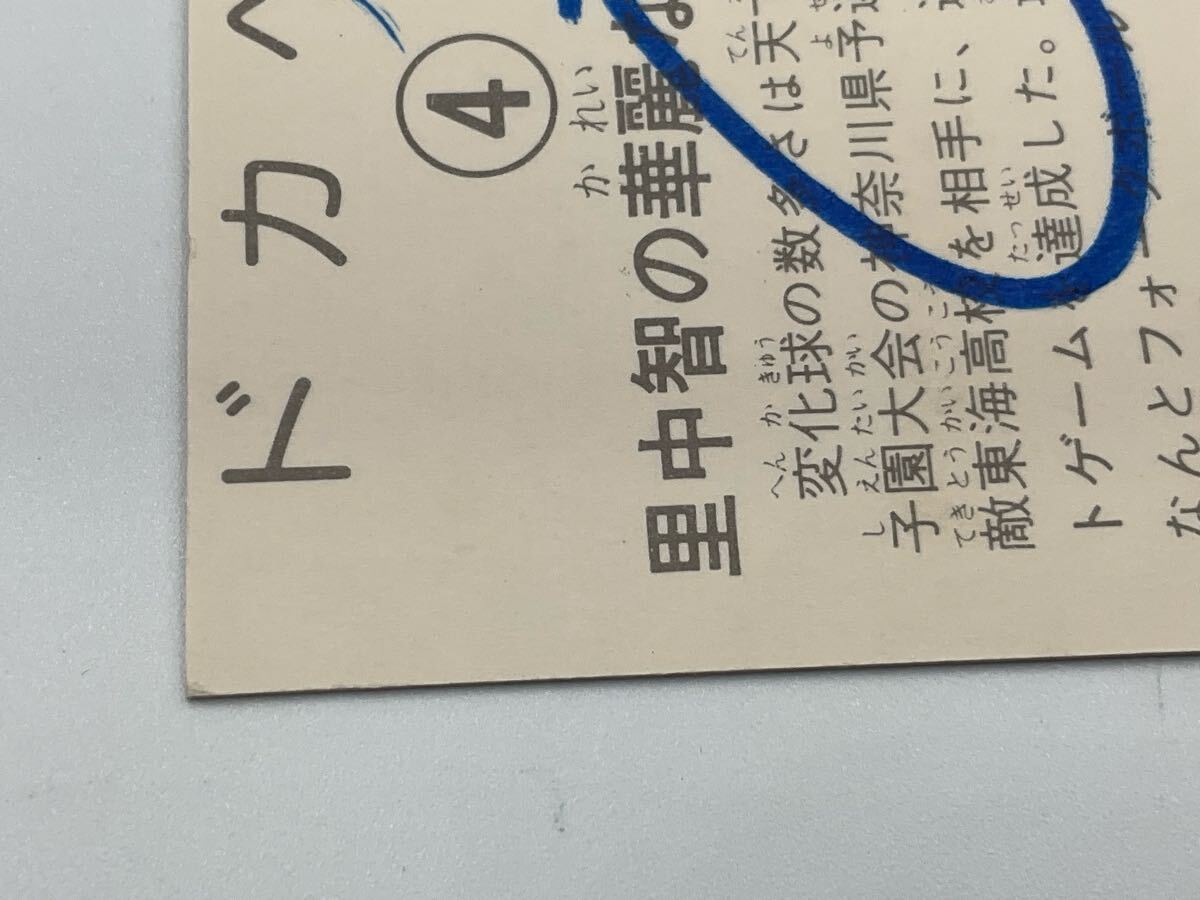 ドカベ
④
里中智の華麗な
変化球の数多さは天
子園大会の神奈川県予
敵東海高校を相手に、
トゲームを達成した。
なんとフォークボール